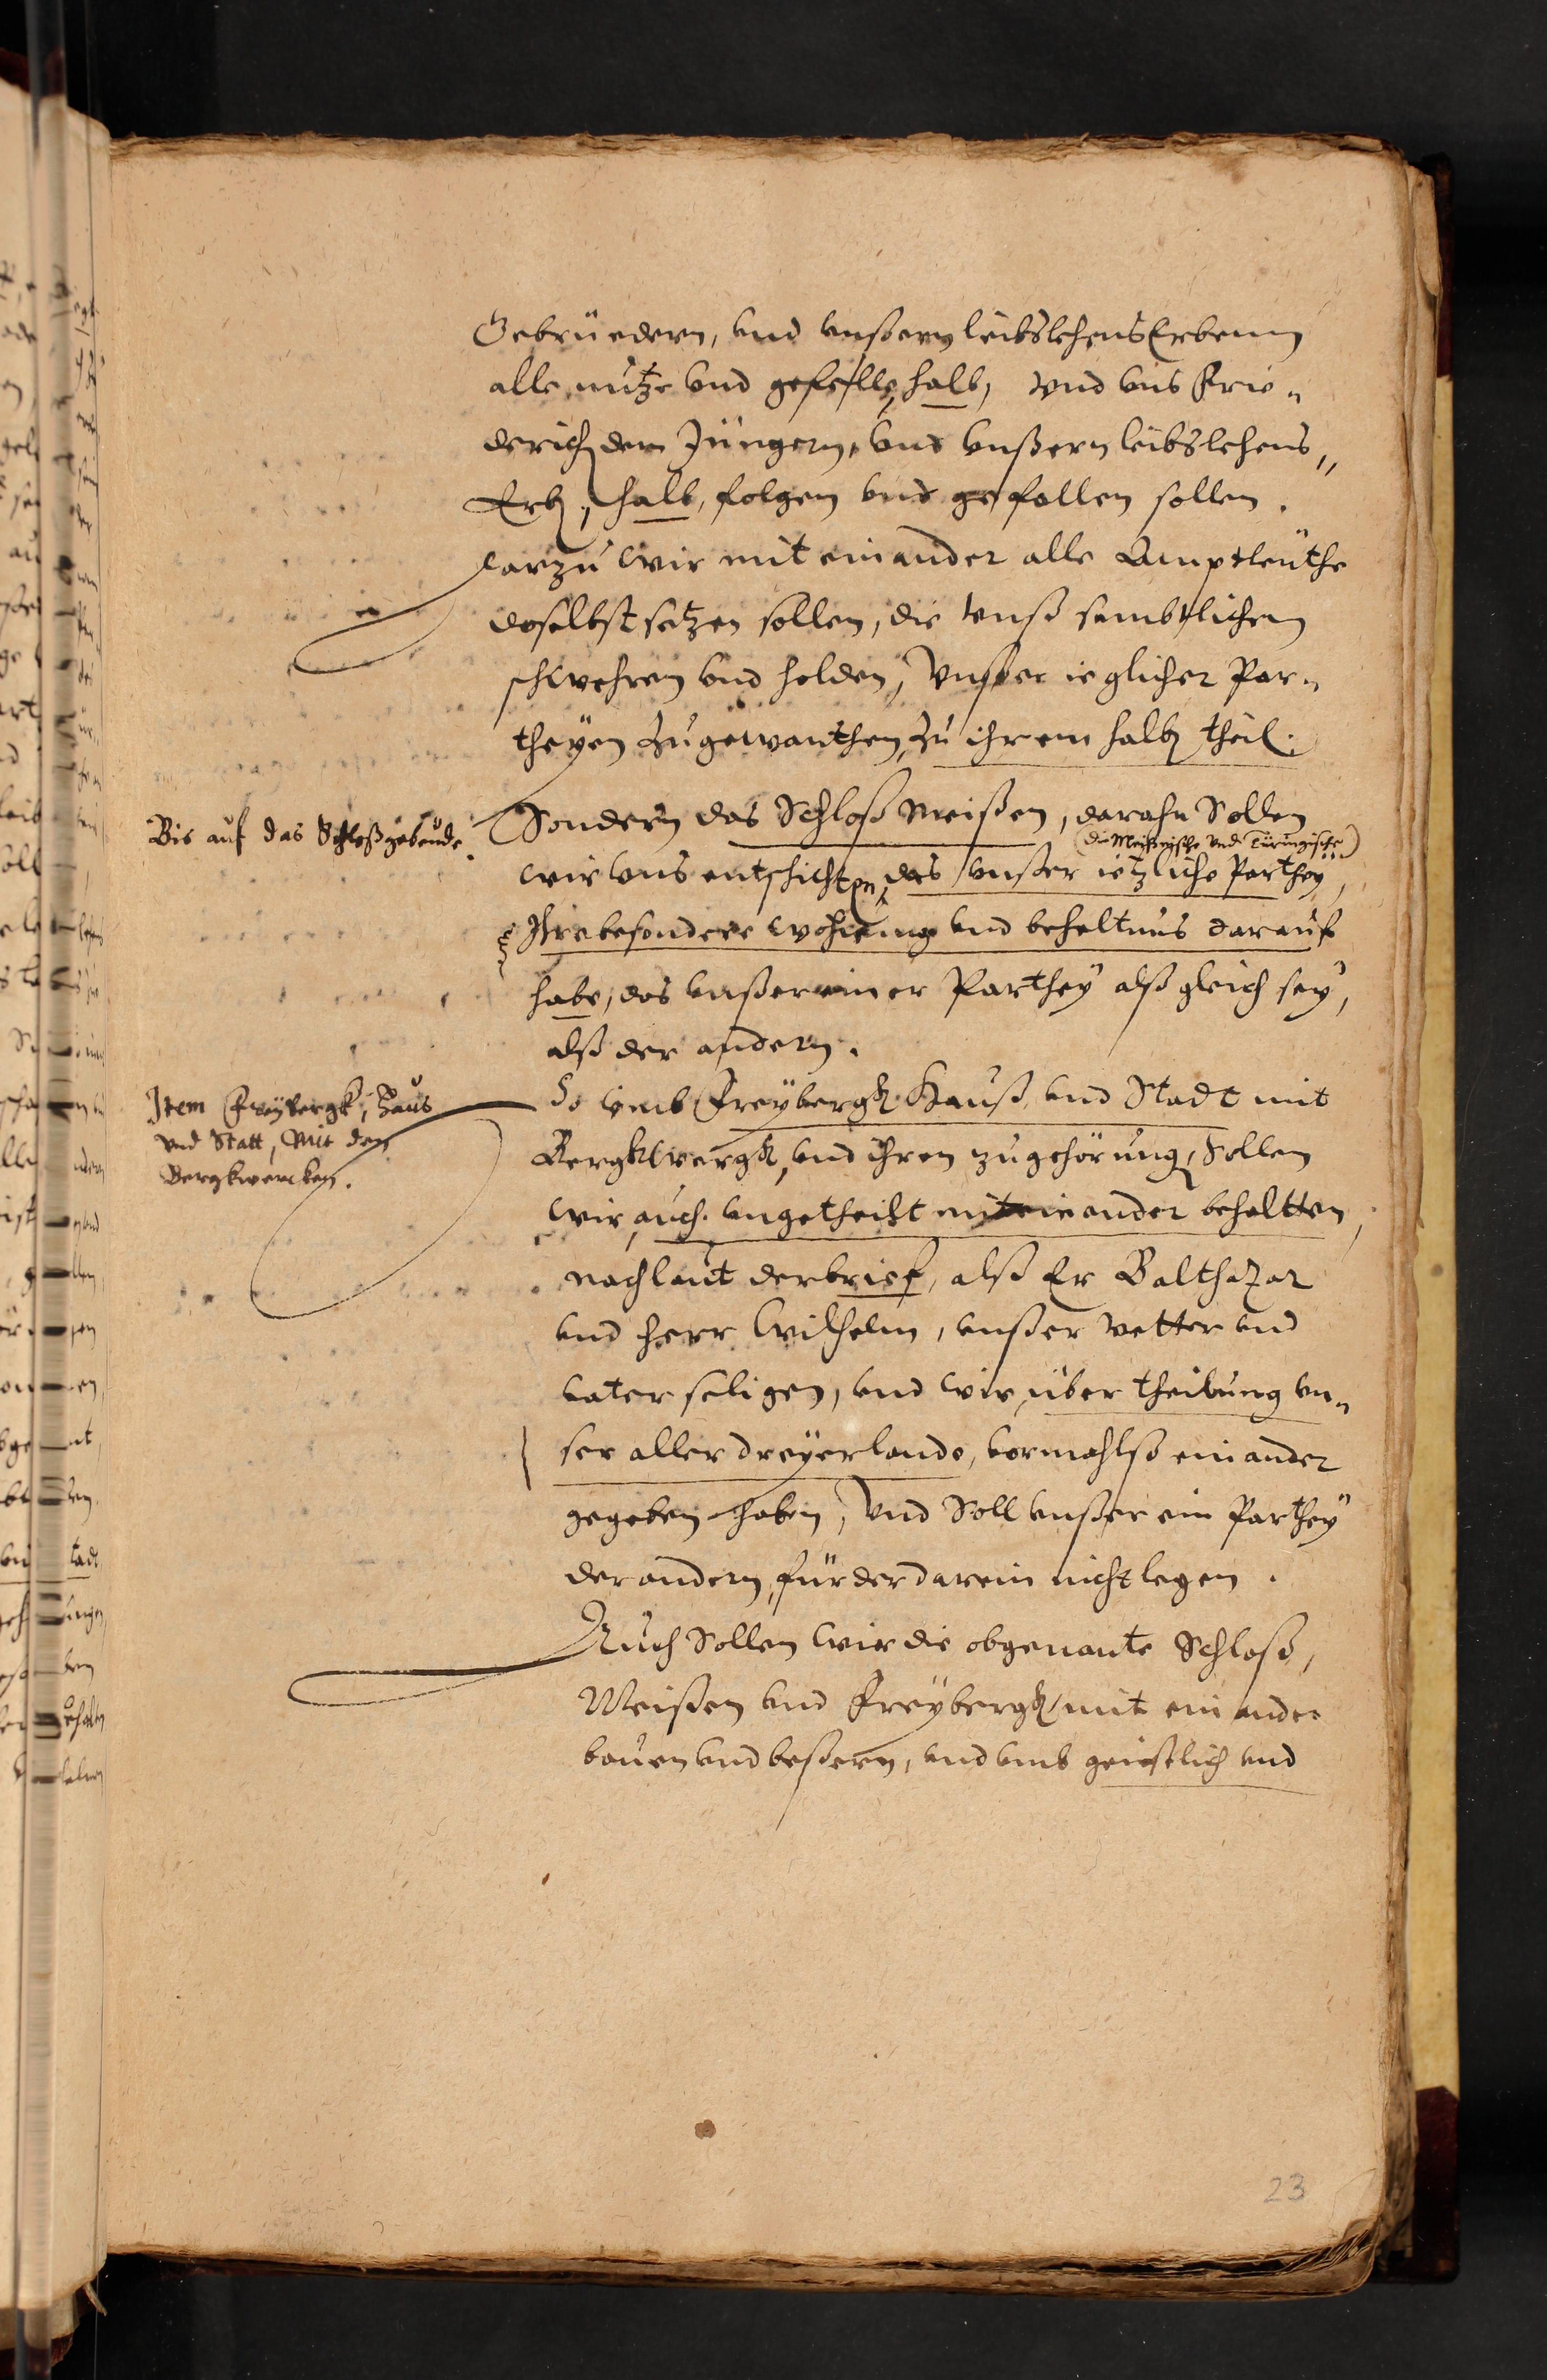 Gebrüedern, vnd vnßern leibslehensErbenn
alle nutze vnd gefelle, halb, vnd vns Frie„
derich den Jüngern, vnd vnßern leibslehens„
Erb, halb, folgen vnd gefallen sollen.
darzu wir mit einander alle Amptleuthe
doselbst setzen sollen, die vnß sembtlichen
schwehren vnd holden, Vnßer ieglicher Par„
theyen Zugewanthen, Zu ihrem halb theil.
Bis auf das Schloßgebeude.
Sondern das Schloß Meißen, darahn Sollen
(die Meißnische vnd Türingische)
wir vns entschichten, das vnßer ietzliche Parthey,
Ihre besondere wohnung vnd beheltnus darauf
habe, das vnßer einer Parthey alß gleich sey,
alß der andern.
Item Freybergk, Haus
vnd Statt, Mit den
Bergkwercken.
So vmb Freybergk Hauß vnd Stadt mit
Bergkwergk, vnd ihren zugehörung, Sollen
wir, auch vngetheilt mit einander behaltten,
nachlaut der brief, alß Er Balthazar
vnd Herr Wilhelm, vnßer Vetter vnd
vater seligen, vnd wir, über theilung vn„
ser aller dreyer lande, vormahlß einander
gegeben haben, Vnd Soll vnßer ein Parthey
der andern, fürder darein nicht legen.
Auch Sollen wir die obgenante Schloß,
Meißen vnd Freybergk mit einander
bauen vnd beßern, vnd vmb geistlich vnd
23